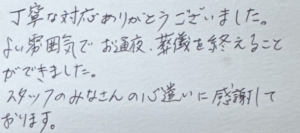 丁寧な対応ありがとうございました。
よい雰囲気でお通夜、葬儀を終えること
ができました。
スタッフのみなさんの心遣いに感謝して
おります。